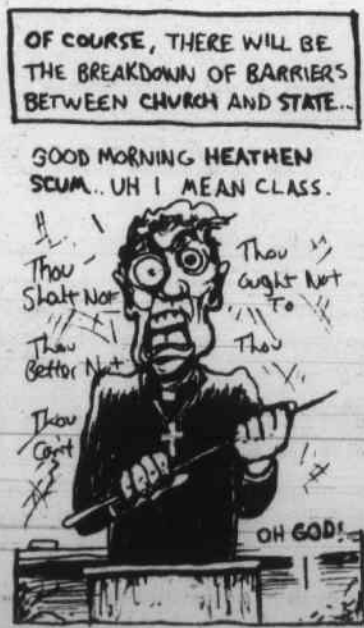 OF COURSE, THERE WILL BE
THE BREAKDOWN OF BARRIERS
BETWEEN CHURCH AND STATE...
GOOD MORNING HEATHEN
SCUM.. UH I MEAN CLASS.
Thou
Shalt Not
Thou
Ought Not
To
Thou
Better Not
Thou
Thou
Can't
OH GOD!